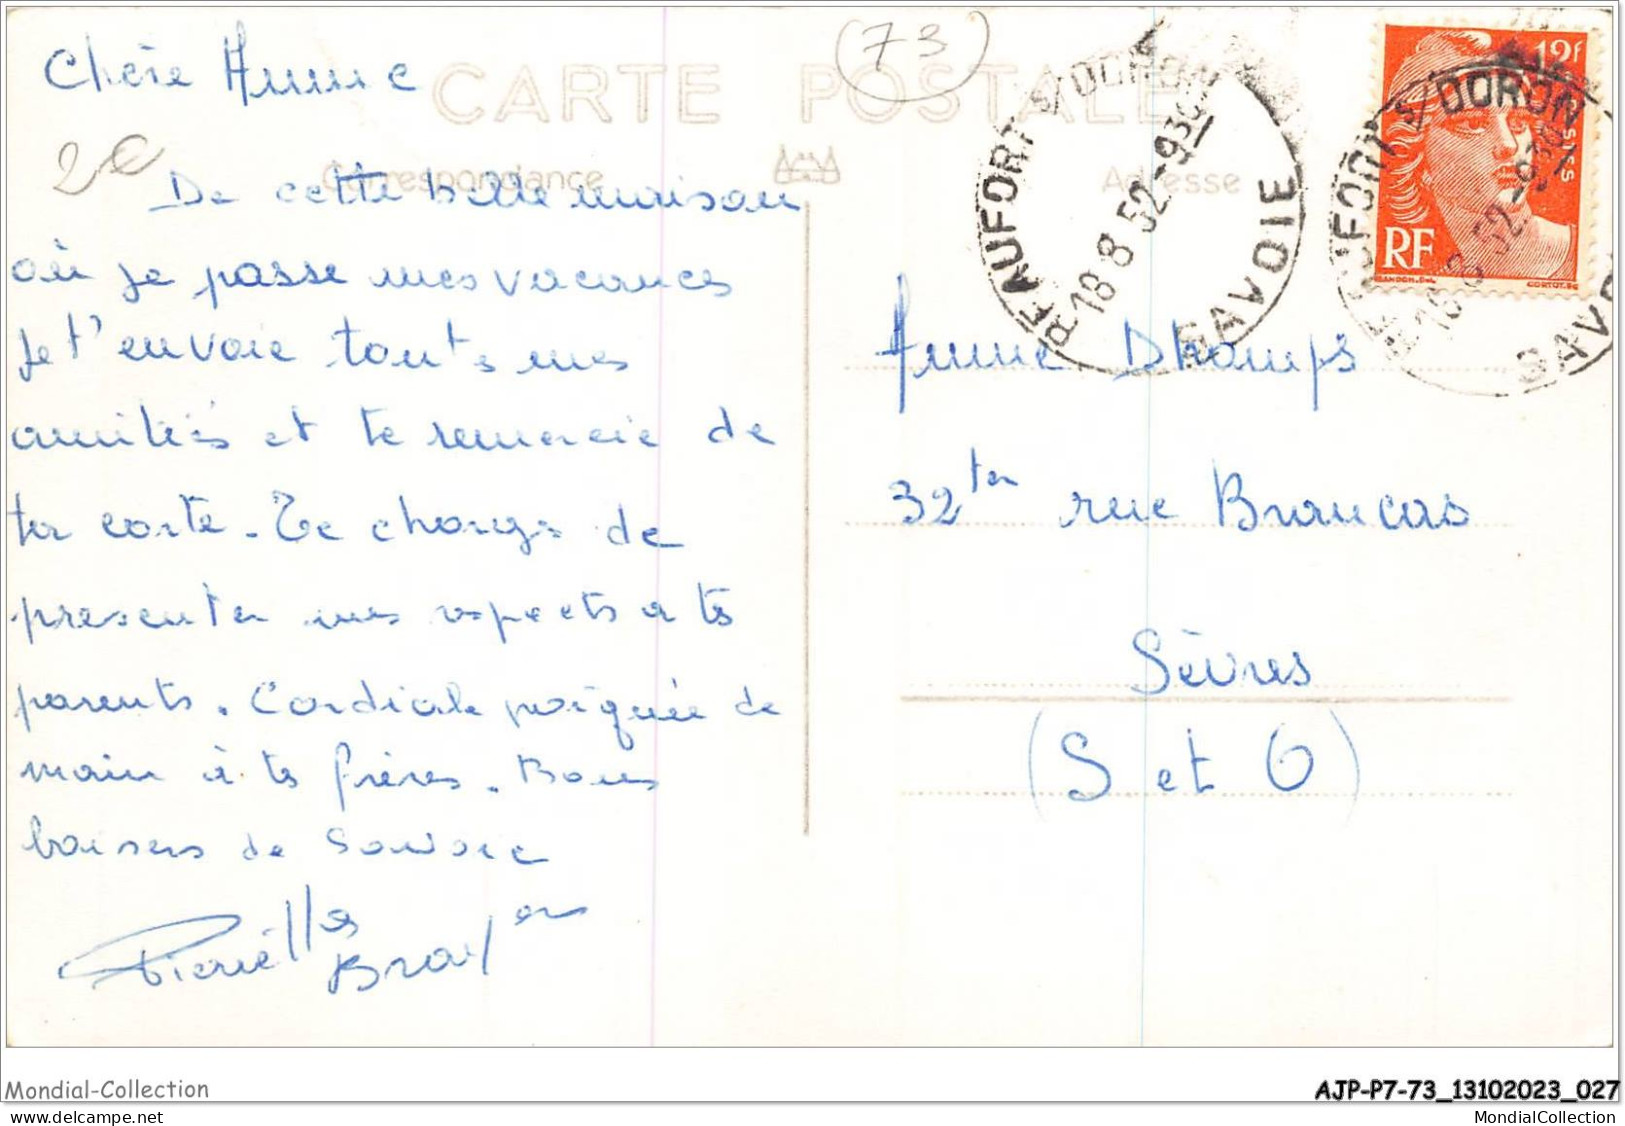 CARTE POSTALE
(73)
Correspondance
Adresse
2€
Chère Annie
De cette belle maison
où je passe mes vacances
je t'envoie toutes mes
amitiés et te remercie de
ta carte. Te charge de
presenter mes respects a tes
parents. Cordiale poignée de
main à tes frères. Bons
baisers de Savoie
BEAUFORT S/DORON
18-8 52-930
SAVOIE
12F
POSTES
RF
BEAUFORT S/DORON
18-8 52-930
SAVOIE
Annie Dhamps
32ter rue Brancas
Sèvres
(S et O)
Mondial-Collection
AJP-P7-73_13102023_027
delcampe.net
MondialCollection